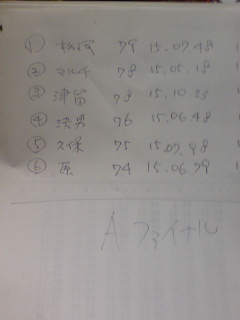 ① 松河 79 15.07.48
② マルチ 78 15.05.18
③ 津笛 78 15.10.33
④ 決男 76 15.06.48
⑤ 久保 75 15.07.98
⑥ 原 74 15.06.79
A ファイナル